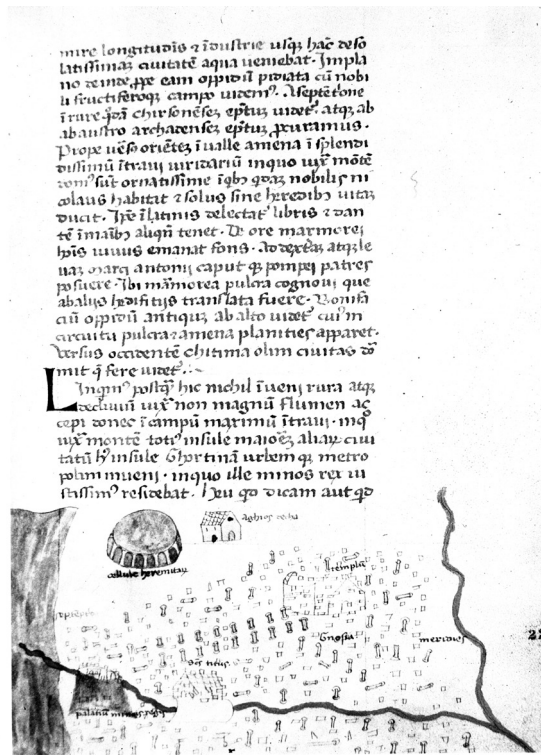 mire longitudīs & īdustrie usq; hāc deso
latissimaȝ ciuitatē aqua ueniebat. Impla
no deinde ꝓpe eam oppidū pidiata cū nobi
li fructiferoq; campo uidemꝰ. Aseptētōne
ī rure qdā chirsonēseȝ eptuȝ uidet atq; ab
ab austro archadenseȝ eptuȝ ꝓcuramus.
Prope uēso oriētēȝ īualle amena ī splendi
dissimū ītraui uiridariū inquo
sūt ornatissime īqbꝰ qdaȝ nobilis ni
colaus habitat & solus sine heredibꝰ uitaȝ
ducit. Ipē īlatinis delectat libris & dan
tē īmaībꝰ aliqn̄ tenet. De ore marmorei
hoīs uiuus emanat fons. Addextaȝ atq; le
uaȝ marci antonij caput & pompei patres
posuere. Ibi mārmorea pulcra cognoui que
abalijs hedifitijs translata fuere. Bonifa
ciū oppidū antiquȝ ab alto uidet cuiꝰ in
circuitu pulcra & amena planities apparet.
Versus occidentē chitima olim ciuitas dō
mit q̄ fere uidet.
Linqmꝰ postq̄ hic nichil īueni rura atq;
decliuiū non magnū flumen ac
cepi donec ī campū maximū ītraui. inq̊
montē totiꝰ insule maioȝ aliaȝ ciui
tatū hꝰ insule Ghortinā urbem q; metro
polim inueni. inquo ille minos rex iu
stissimꝰ residebat. Heu qd dicam aut qd
aghios
cellule heremitaȝ
templa
Gnosia
meridies
titus
palatiū minois regis
22